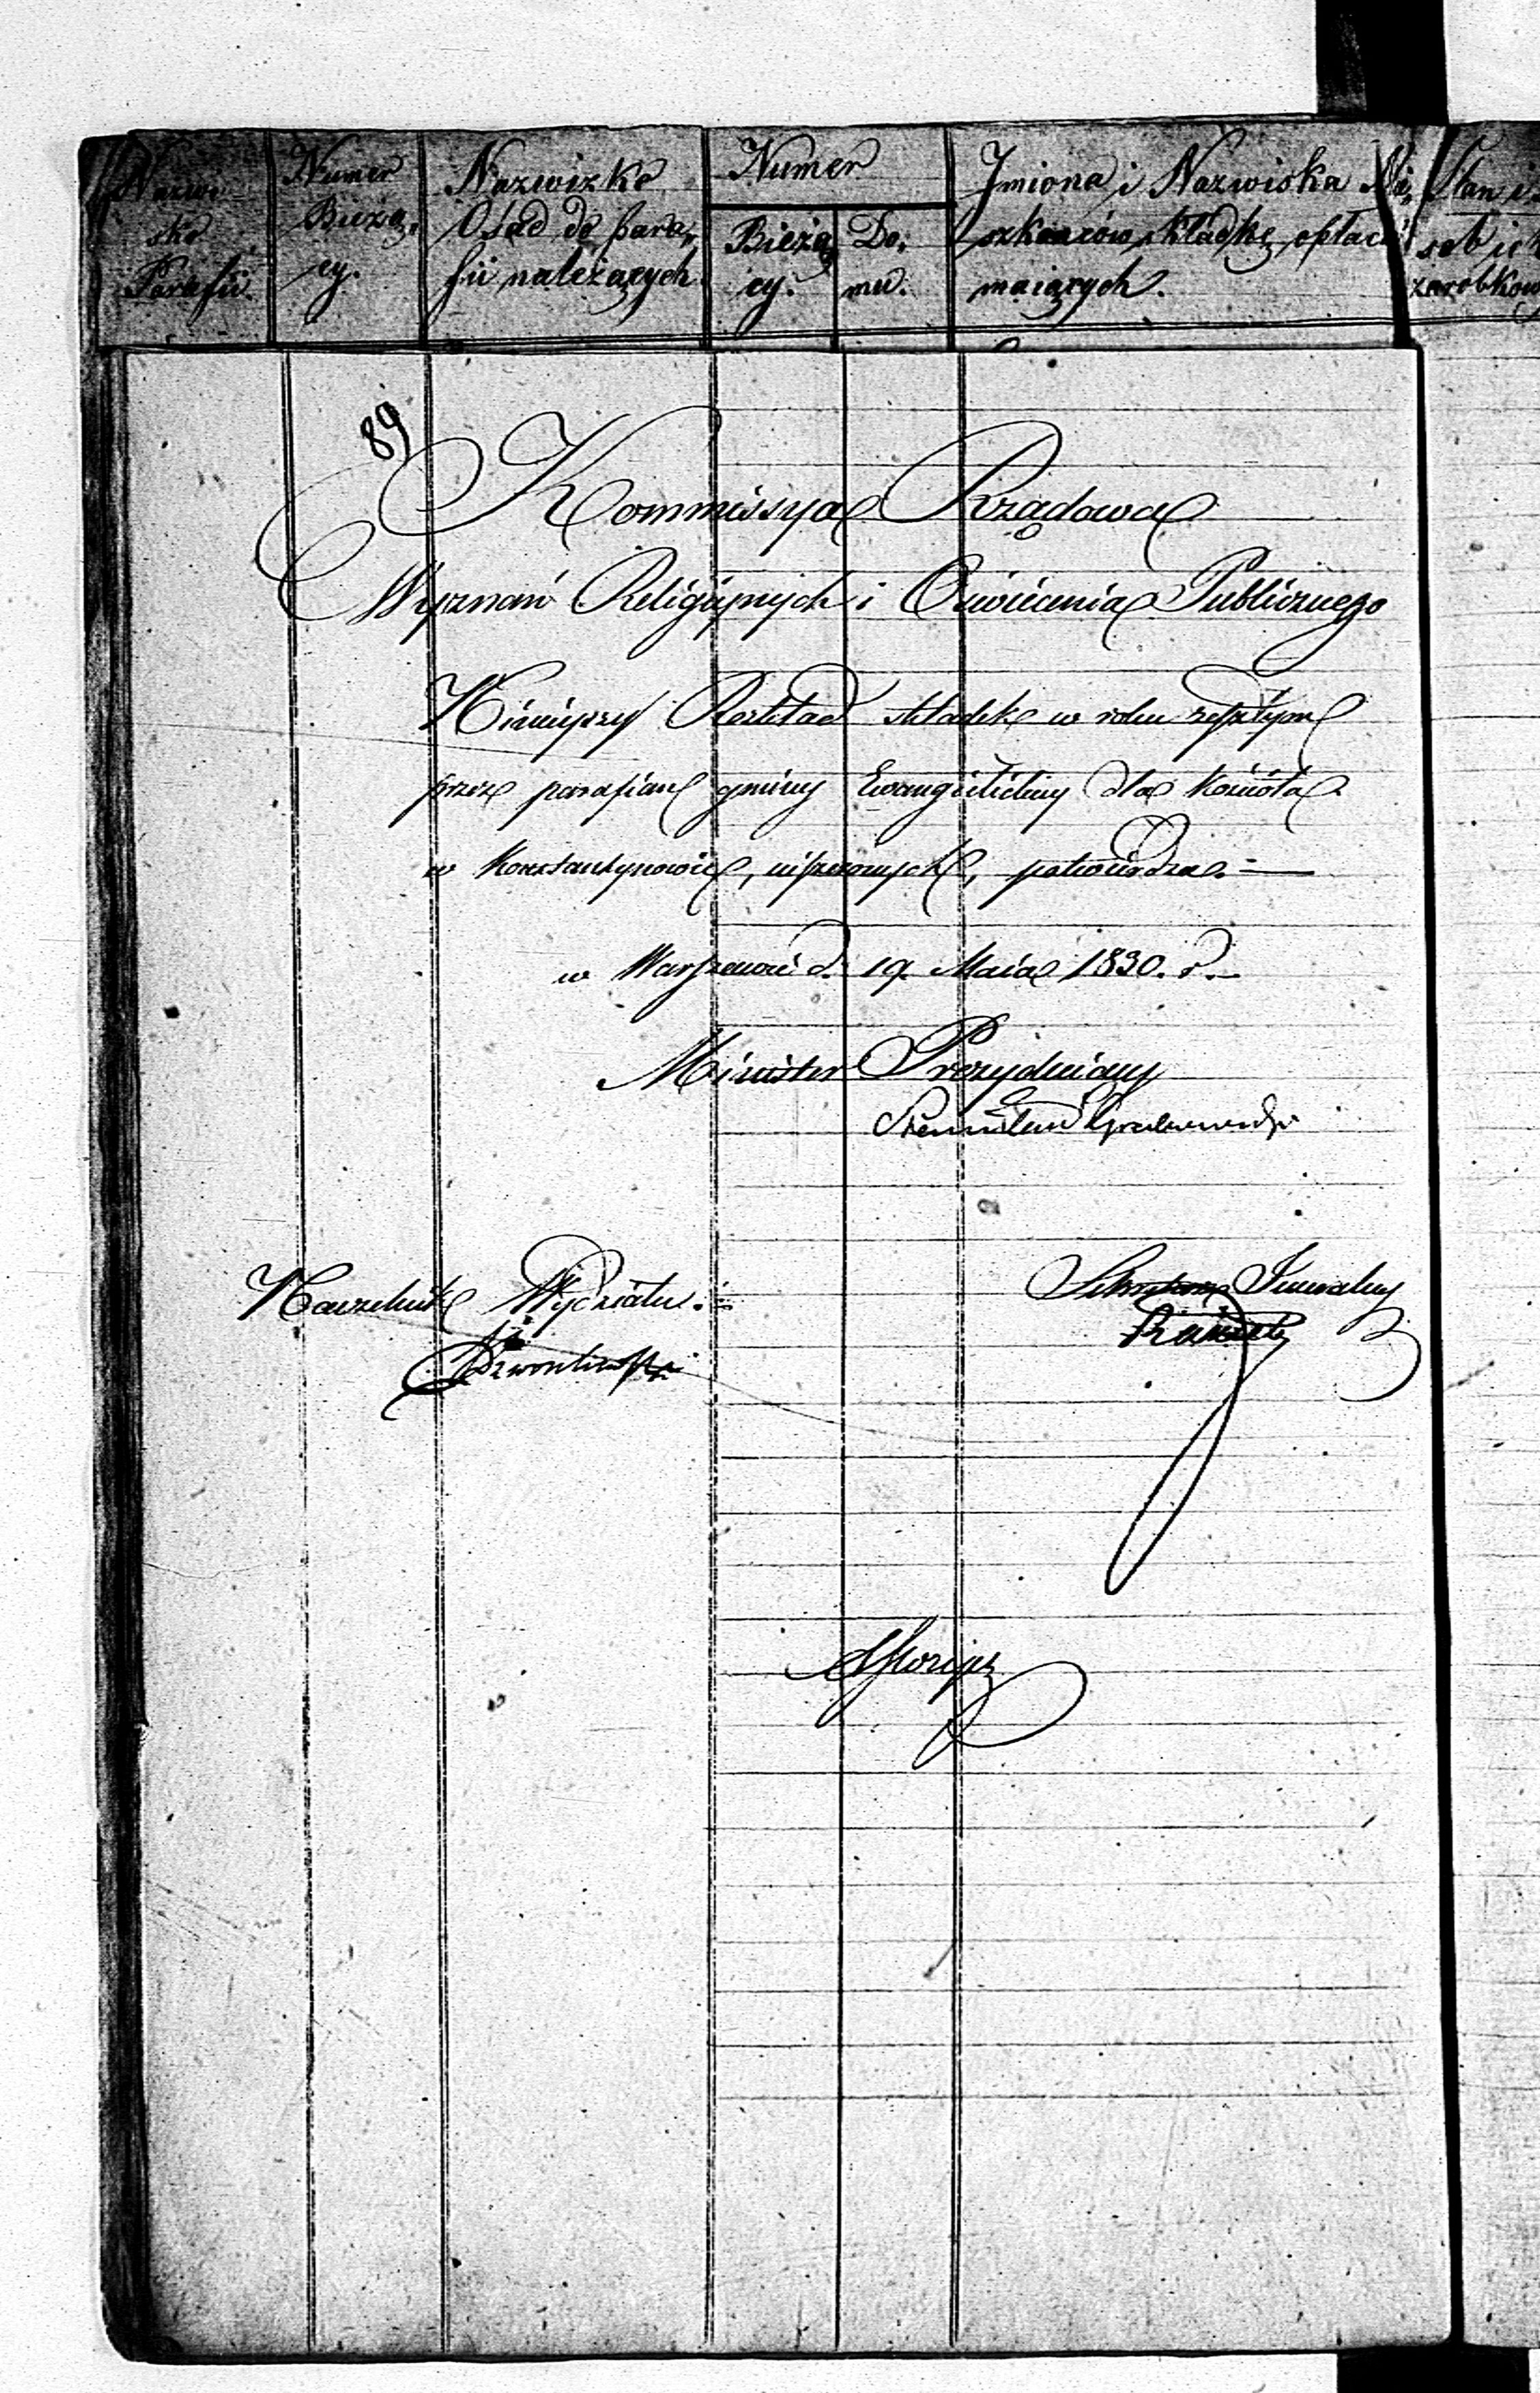 Nazwi-
sko
Parafii.
Numer
Bieżą,
cy.
Nazwizko
Osad do para,
fii należących.
Numer
Bieżą
cy.
Do,
mu.
Jmiona i Nazwiska Mi,
szkańców, składkę opłaci
maiących.
Stan
sob ich
zarobkow
89
Kommissya Rządowa
Wyznań Religijnych i Oświecenia Publicznego
Ninieyszy Rozkład składek w roku zeszłym
przez parafian gminy Ewangielickiey dla kościoła
w Konstantynowie, uiszczonych, potwierdza. —
w Warszawie d. 19. Maia 1830. r. —
Minister Prezyduiący
Stanisław Grabowski
Naczelnik Wydziału.
Sekretarz Jeneralny